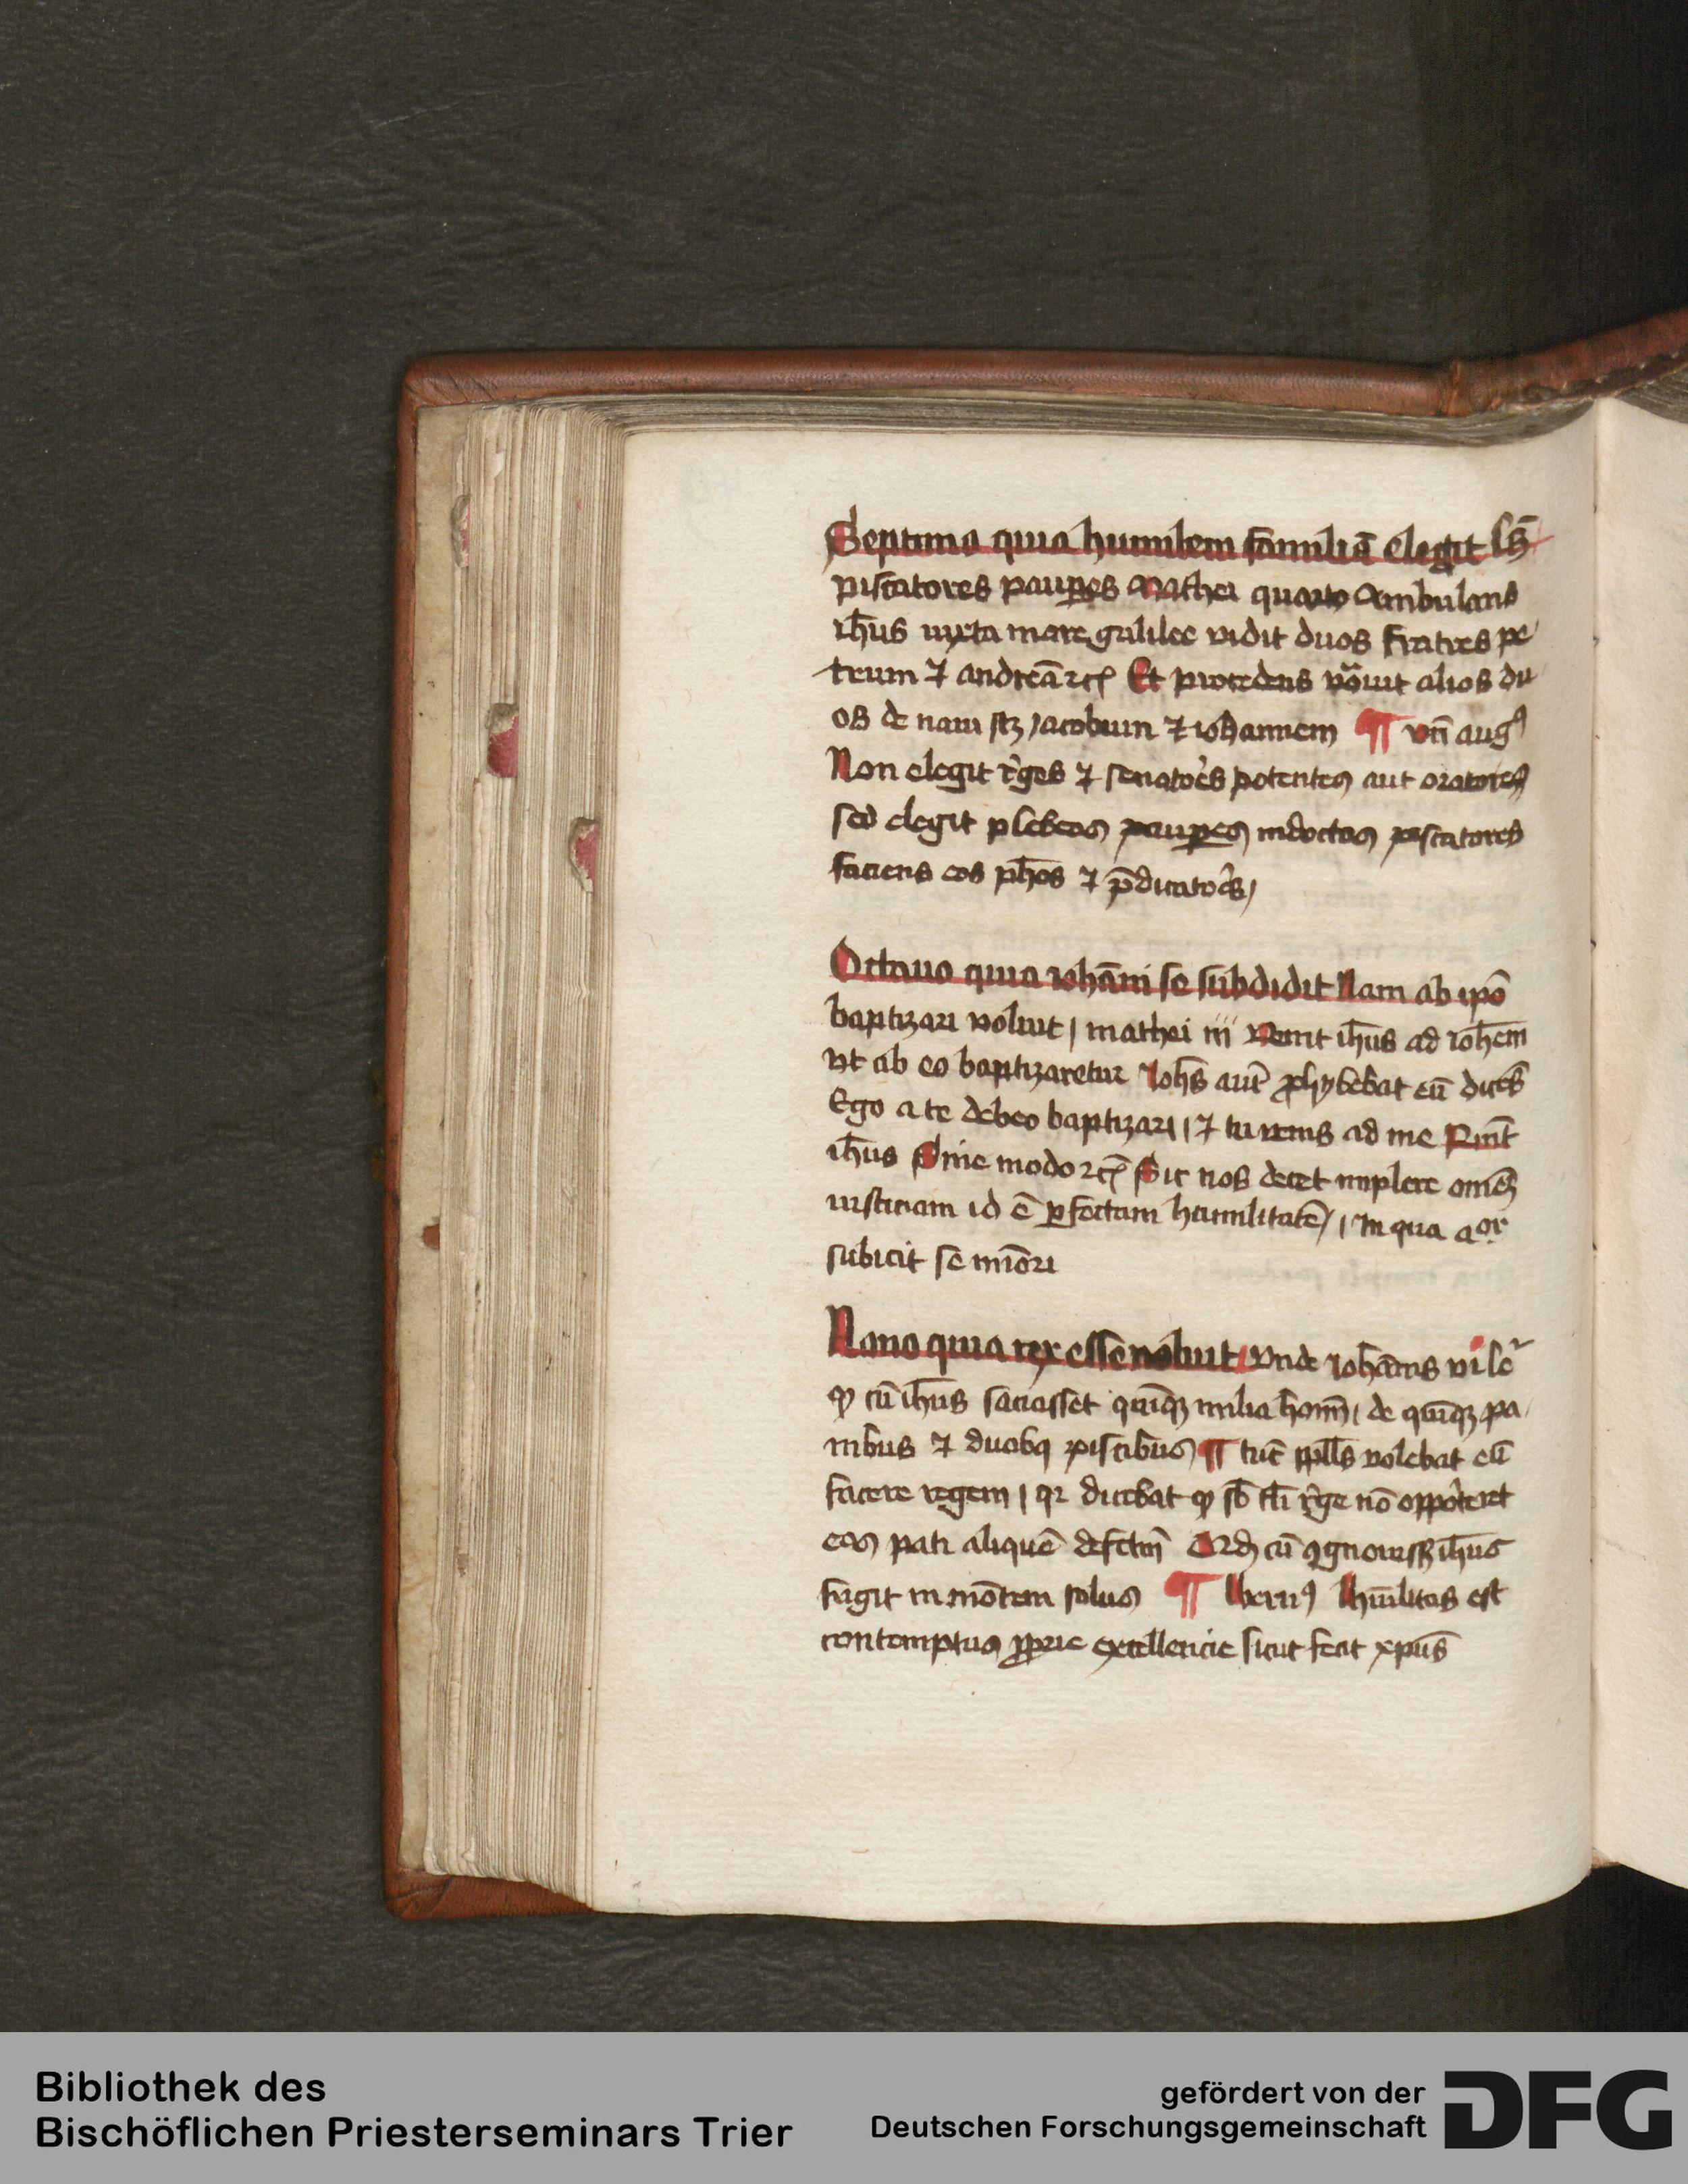 Septimo quia humilem familiā elegit
piscatores pauꝑes Mathei quarto Ambulans
ih̄us iuxta mare galilee vidit duos fratres pe
trum ⁊ andreā ⁊cꝭ Et procedens vocauit alios du
os de naui sꝫ iacobum ⁊ iohannem ¶ vn̄ augꝰ
Non elegit reges ⁊ senatores potentes aut oratores
sed elegit plebeos pauꝑes indoctos piscatores
faciens eos ph̄os ⁊ p̄dicatores
Octauo quia ioh̄āni se subdidit Nam ab ipō
baptizari voluit / mathei iii Venit ih̄us ad ioh̄em
vt ab eo baptizaretur Ioh̄s aut̄ ꝓhybebat eū dicēs
Ego a te debeo baptizari / ⁊ tu venis ad me
ih̄us Sine modo ⁊cꝭ Sic nos decet implere omēꝫ
iusticiam id ē ꝑfectam humilitatē / In qua
subicit se miōri
Nono quia rex esse noluit / vnde ioh̄ānis vi
ꝙ cū ih̄us saciasset quīqꝫ milia hoīm / de quīqꝫ pa
nibus ⁊ duobꝯ piscibus ¶ tūc ppl̄s volebat eū
facere regem / qꝛ dicebat ꝙ sb̄ tli rege nō opporteret
eos pati aliquē defctm̄ cū ꝯgnouisꝫ ih̄us
fugit in mōtem solus ¶ Hūilitas est
contemptus ꝓprie excellencie sicut fecit xp̄us
Bibliothek des
Bischöflichen Priesterseminars Trier
gefördert von der
Deutschen Forschungsgemeinschaft
DFG